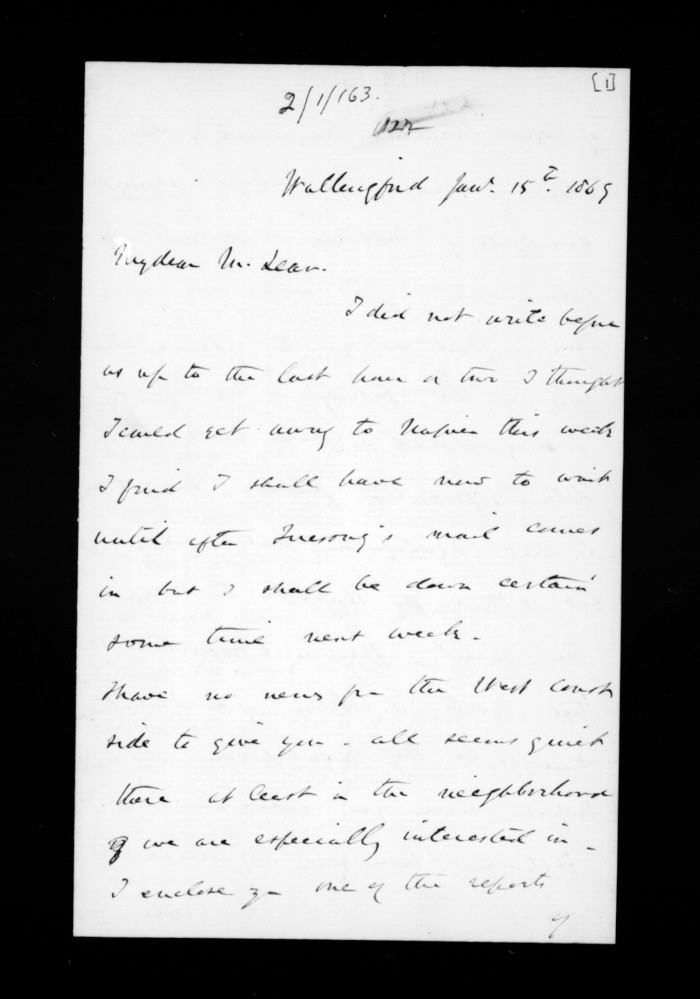 [1]
2/1/163.
122
Wallingford Jany. 15th. 1869
My dear McLean.
I did not write before
as up to the last hour or two I thought
I could get away to Napier this week
I find I shall have now to wait
until after Tuesday's mail comes
in but I shall be down certain
some time next week -
I have no news fm the West Coast
side to give you - all seems quiet
there at least in the neighborhood
we are especially interested in -
I enclose yu one of the reports
of